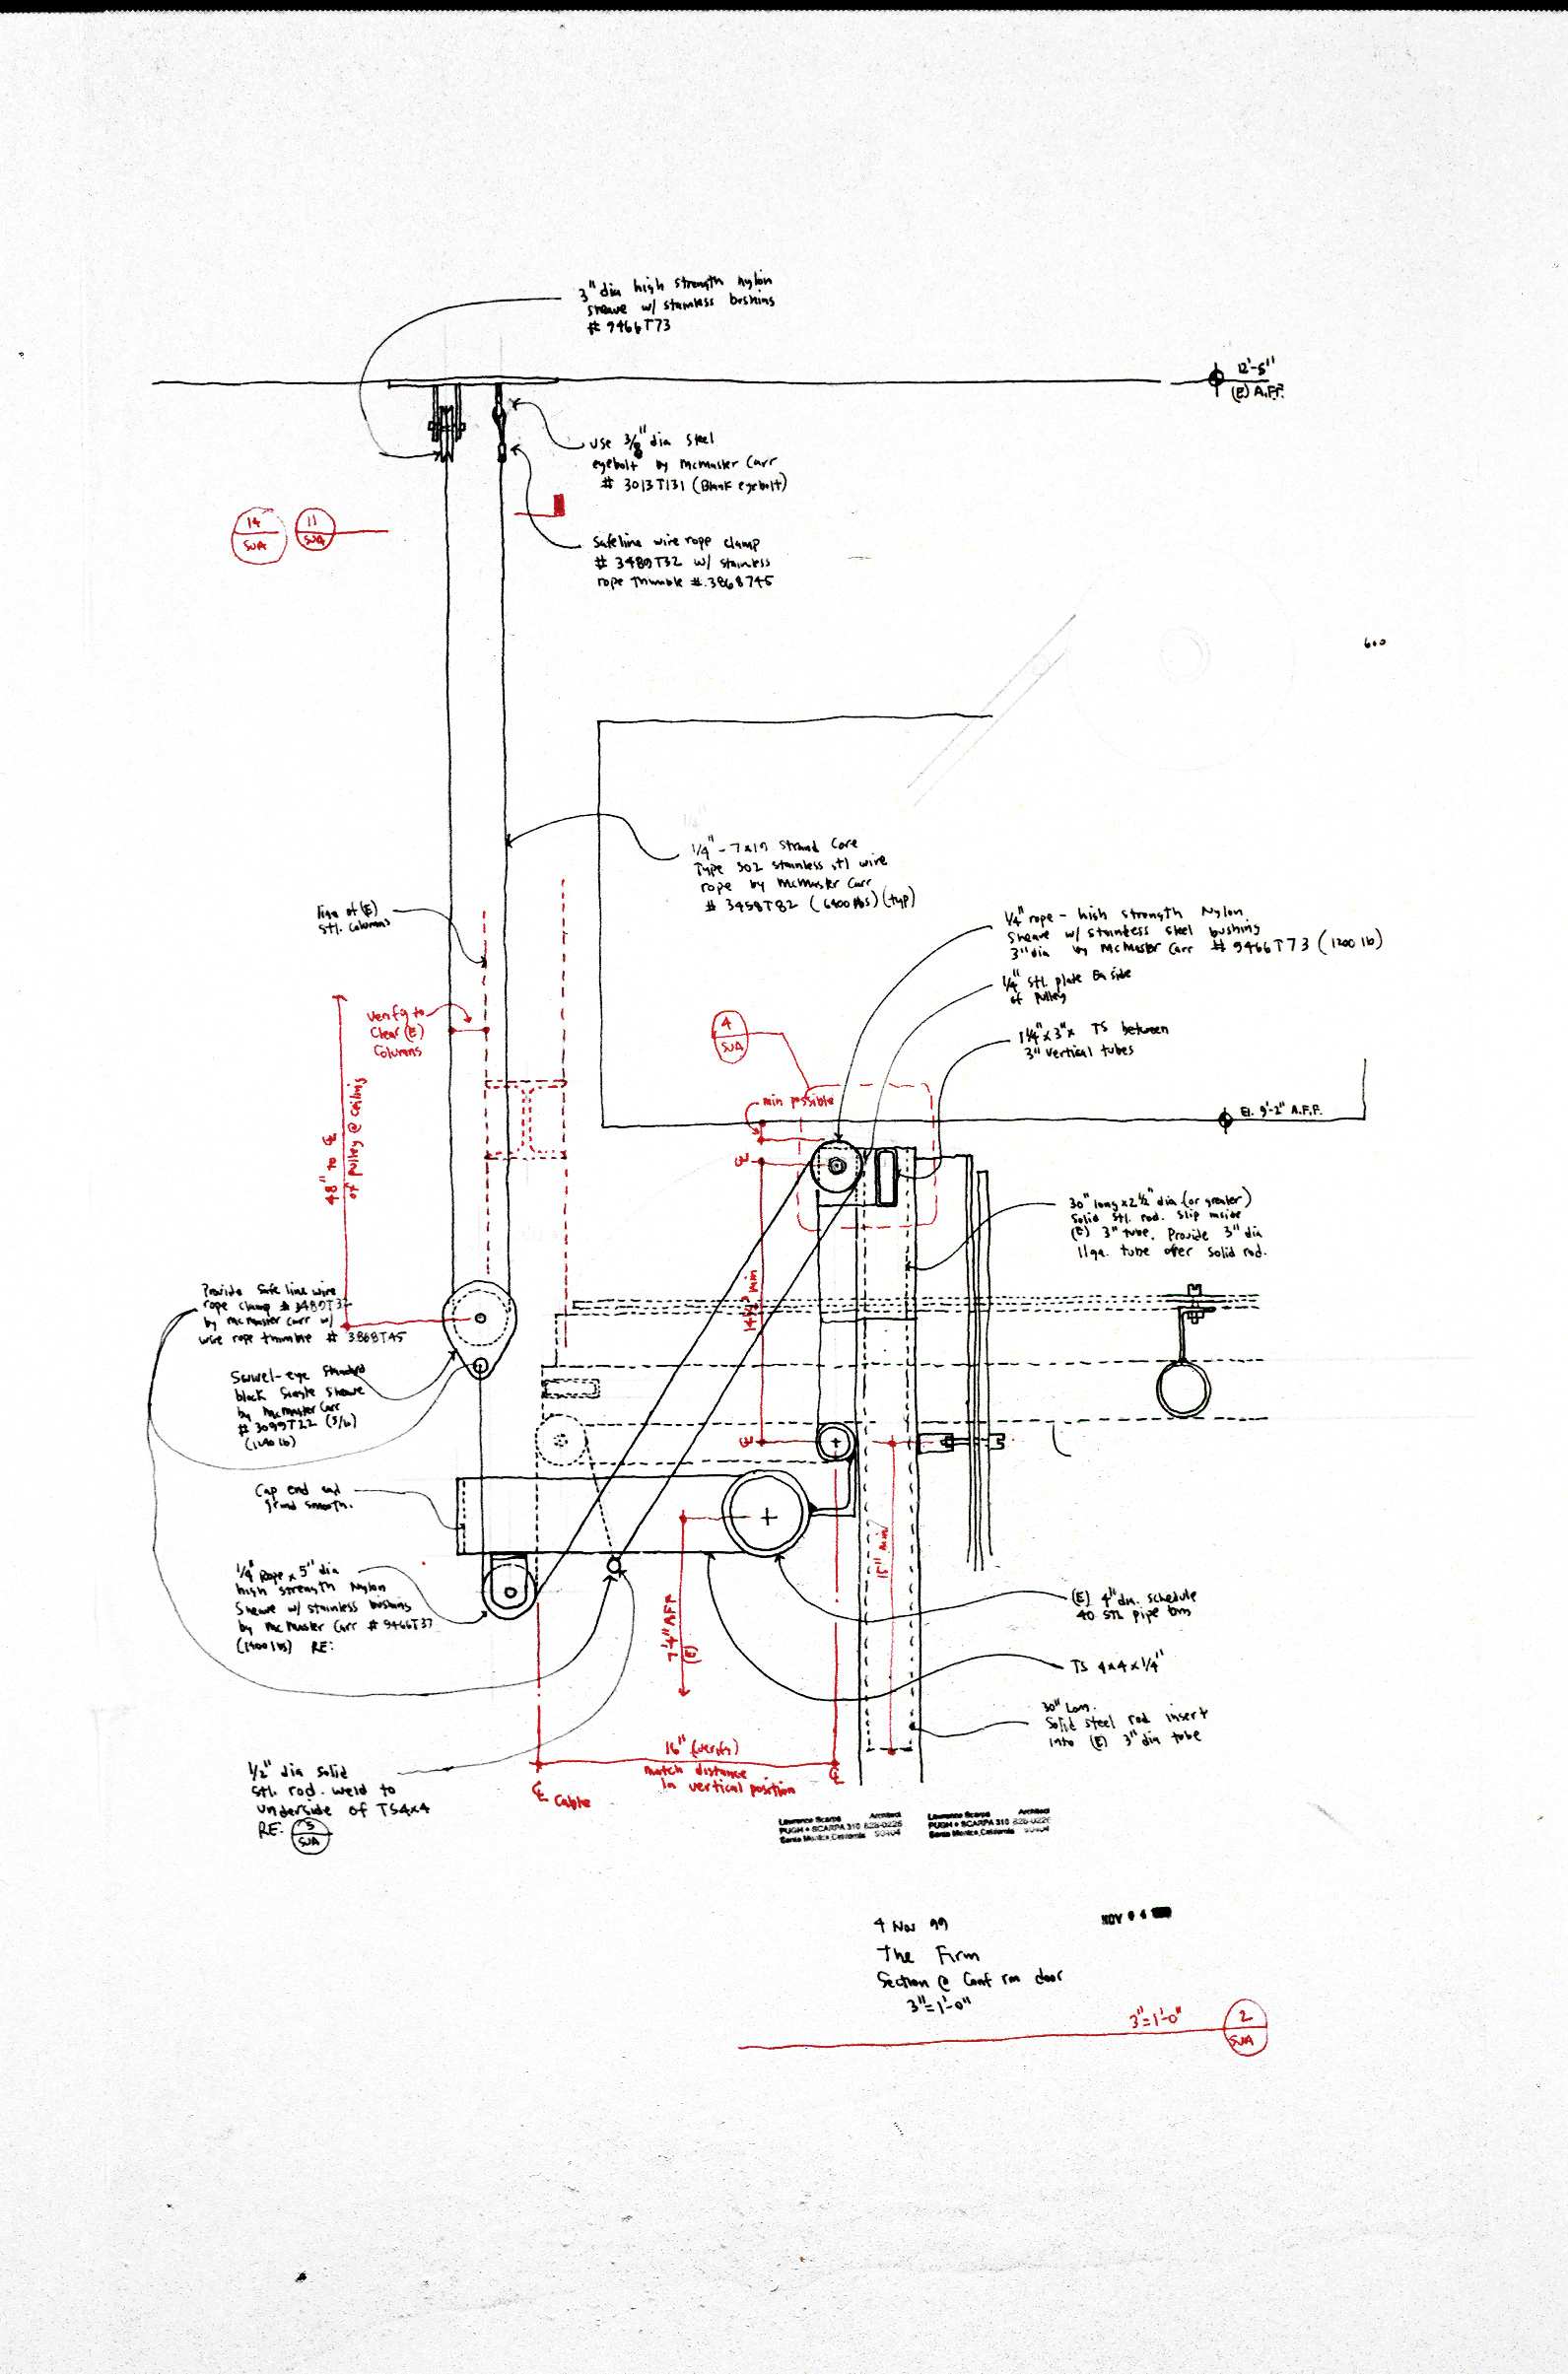 3" dia high strength nylon
sheave w/ stainless bushing
# 9466T73
12'-5"
(E) A.F.F.
use 3/8" dia steel
eyebolt by McMaster Carr
# 3013T131 (Blank eyebolt)
14
SUA
11
SUA
Safeline wire rope clamp
# 3489T32 w/ stainless
rope thimble #.3868745
600
1/4" - 7x19 Strand Core
Type 302 stainless stl wire
rope by McMaster Carr
# 3458T82 (6400 lbs) (typ)
line of (E)
Stl. Columns
1/4" rope - high strength Nylon
Sheave w/ stainless steel bushing
3" dia by McMaster Carr # 9466T73 (1200 lb)
1/4" stl. plate Ea side
of pulley
1 1/4" x 3" x TS between
3" vertical tubes
Verify to
Clear (E)
Columns
4
SUA
min possible
El. 9'-2" A.F.F.
48" to ℄
of pulley @ ceiling
30" long x 2 1/2" dia (or greater)
Solid stl. rod. Slip inside
(E) 3" tube. Provide 3" dia
11ga. tube over solid rod.
min
Provide Safe line wire
rope clamp # 3489T32
by McMaster Carr w/
wire rope thimble # 3868T45
Swivel-eye Standard
block Single sheave
by McMaster Carr
# 3099T22 (5/16)
Cap end and
grind smooth.
15" min
1/4" Rope x 5" dia
high strength Nylon
Sheave w/ stainless bushing
by McMaster Carr # 9466T37
RE:
7'4" AFF
(E)
(E) 4" dia. schedule
40 Stl pipe bm
TS 4x4x1/4"
30" Long.
Solid steel rod insert
into (E) 3" dia tube
16" (verify)
match distance
in vertical position
℄ Cable
℄
1/2" dia Solid
Stl. rod. weld to
underside of TS4x4
RE: 5
SUA
Lawrence Scarpa Architect
PUGH + SCARPA 310 828-0226
Santa Monica, California 90404
Lawrence Scarpa Architect
PUGH + SCARPA 310 828-0226
Santa Monica, California 90404
4 Nov 99
NOV 04
The Firm
Section @ Conf rm door
3"=1'-0"
3"=1'-0"
2
SUA